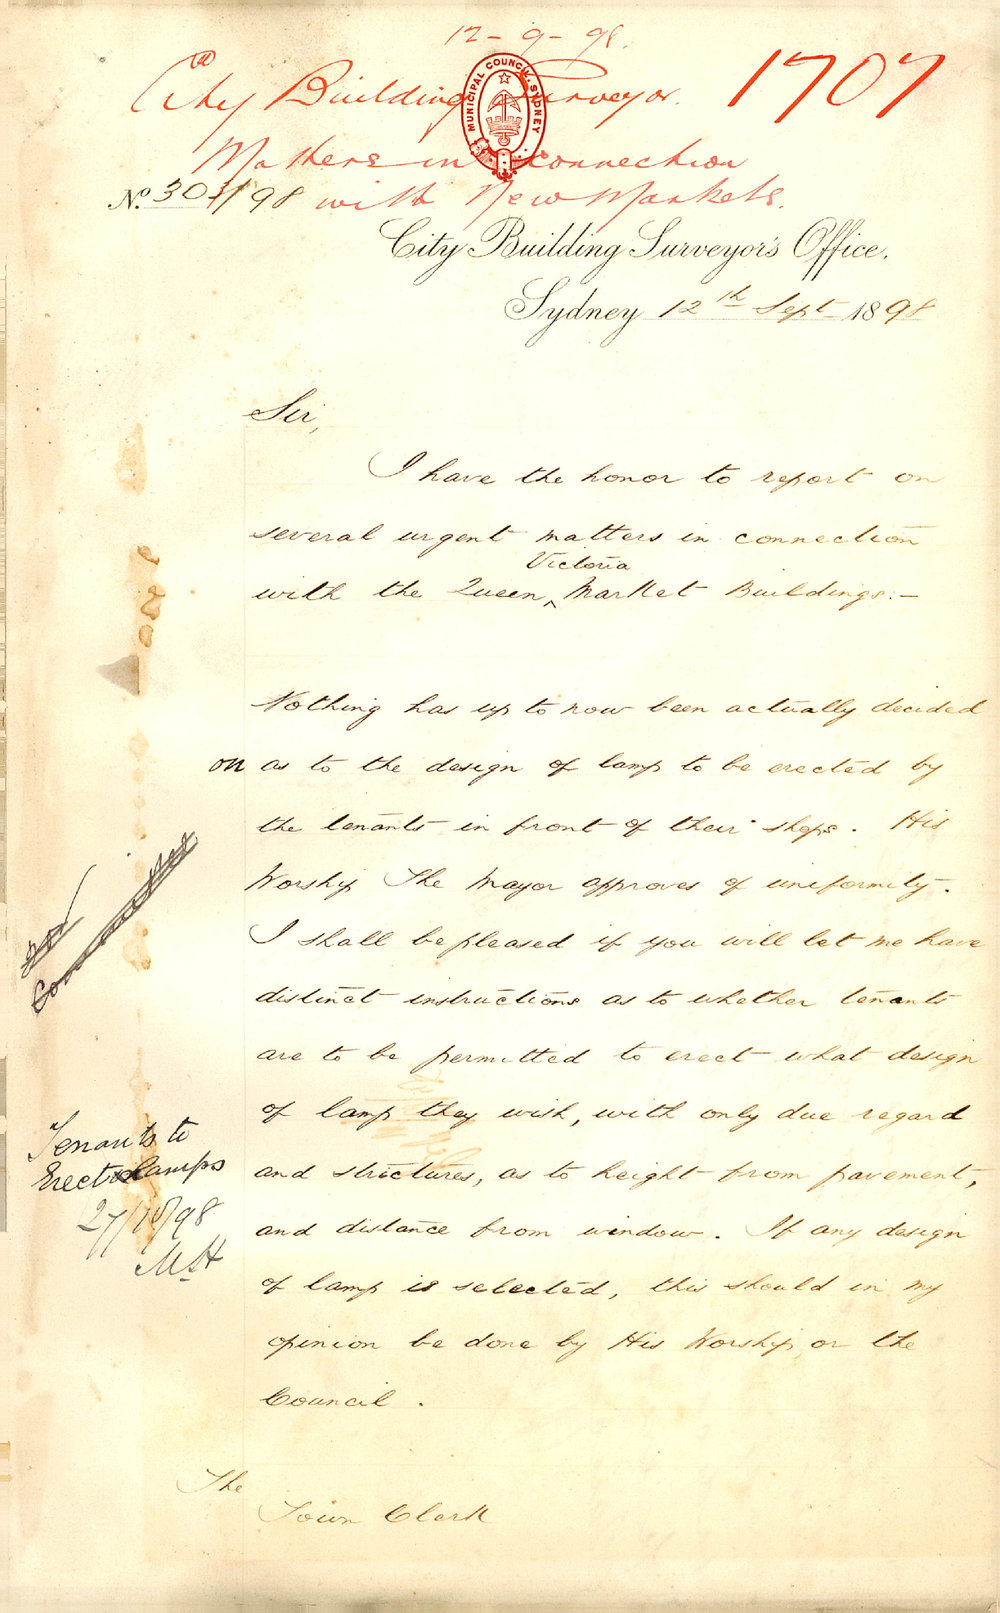 12-9-98.
City Building Surveyor. 1707
MUNICIPAL COUNCIL. SYDNEY
Matters in connection
No. 303/98 with New Markets.
City Building Surveyor's Office.
Sydney 12th Sept 1898
Sir,
I have the honor to report on
several urgent matters in connection
Victoria
with the Queen ^ Market Buildings:-
Nothing has up to now been actually decided
on as to the design of lamp to be erected by
the tenants in front of their shops. His
Worship The Mayor approves of uniformity.
I shall be pleased if you will let me have
distinct instructions as to whether tenants
are to be permitted to erect what design
of lamp they wish, with only due regard
and strictures, as to height from pavement,
and distance from window. If any design
of lamp is selected, this should in my
opinion be done by His Worship, or the
Council.
Tenants to
Erect Lamps
27/10/98
The
Town Clerk